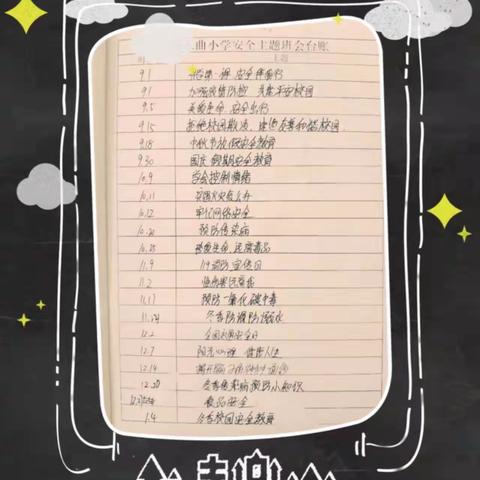 曲小学安全主题班会台账
时 主题
9.1 开学第一课 安全伴我行
9.1 加强疫情防控 共建平安校园
9.5 关爱生命 安全出行
9.15 拒绝校园欺凌, 建设友善和谐校园
9.18 中秋节放假安全教育
9.30 国庆假期安全教育
10.9 学会控制情绪
10.11 发生火灾怎么办
10.12 牢记网络安全
10.20 预防传染病
10.25 珍爱生命 远离毒品
11.9 119消防宣传日
11.2
11.17 预防一氧化碳中毒
11.24 冬季防滑防溺水
12.2 全国交通安全日
12.7 阳光心理 健康人生
12.14
12.20 冬季传染病预防小知识
食品安全
1.4 冬季校园安全教育